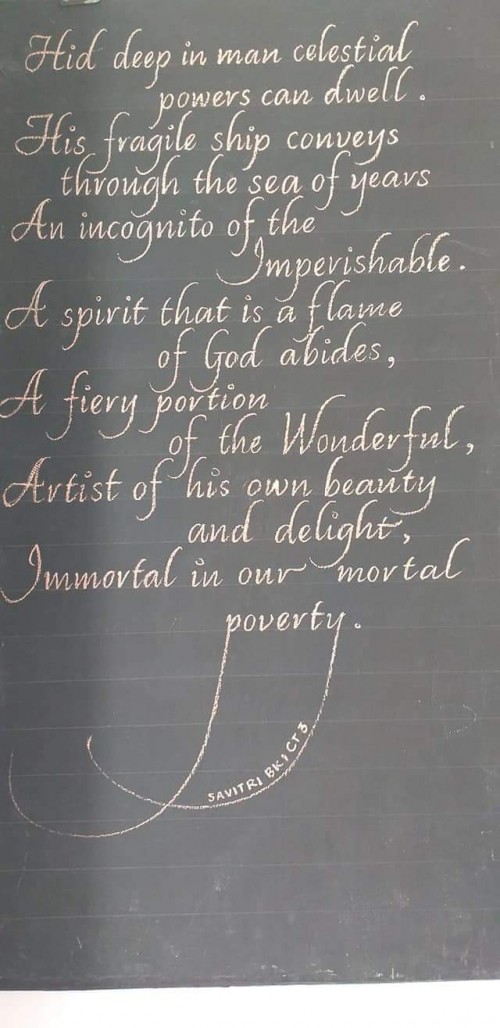 Hid deep in man celestial
powers can dwell.
His fragile ship conveys
through the sea of years
An incognito of the
Imperishable.
A spirit that is a flame
of God abides,
A fiery portion
of the Wonderful,
Artist of his own beauty
and delight,
Immortal in our mortal
poverty.
SAVITRI BK 1 CT 3